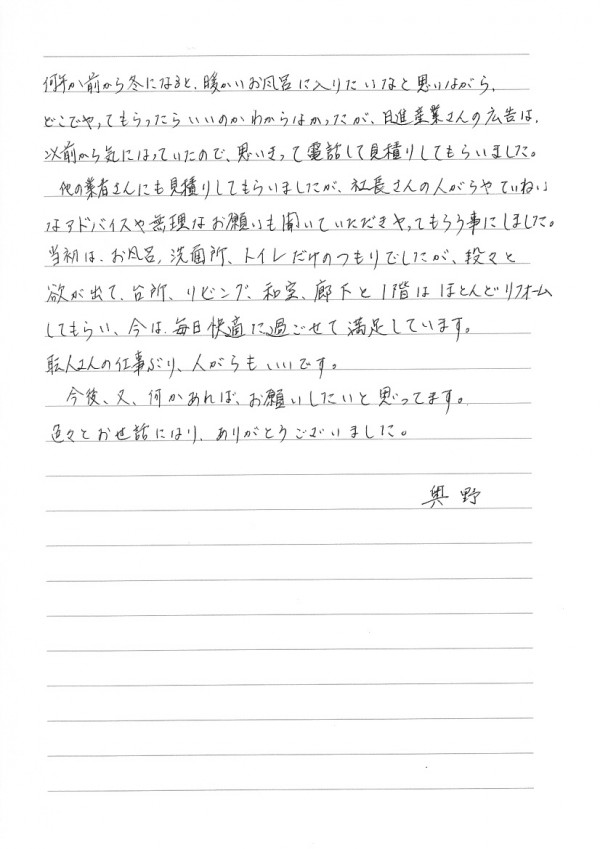 何年か前から冬になると、暖かいお風呂に入りたいなと思いながら、
どこでやってもらったらいいのかわからなかったが、日進産業さんの広告は、
以前から気になっていたので、思いきって電話して見積りしてもらいました。
他の業者さんにも見積りしてもらいましたが、社長さんの人がらやていねい
なアドバイスや無理なお願いも聞いていただきやってもらう事にしました。
当初は、お風呂、洗面所、トイレだけのつもりでしたが、段々と
欲が出て、台所、リビング、和室、廊下と1階はほとんどリフォーム
してもらい、今は、毎日快適に過ごせて満足しています。
職人さんの仕事ぶり、人がらもいいです。
今後、又、何かあれば、お願いしたいと思ってます。
色々とお世話になり、ありがとうございました。
奥野